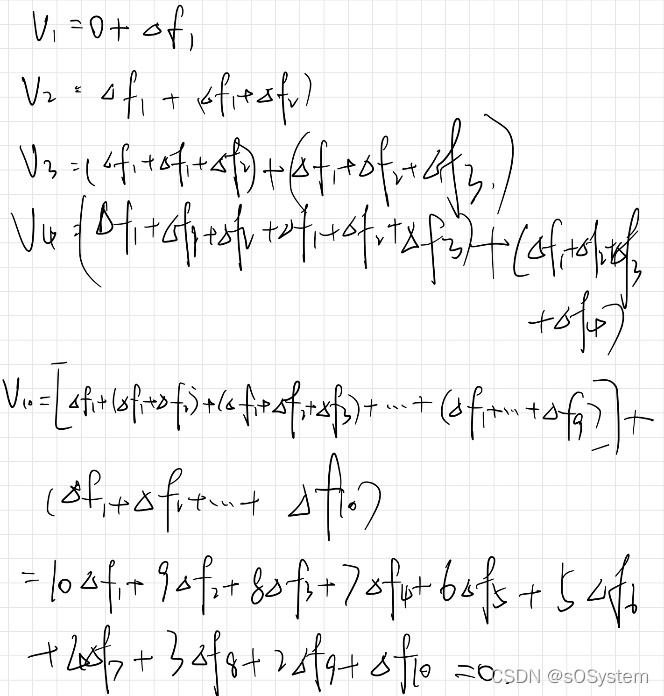 V₁ = 0 + Δf₁
V₂ = Δf₁ + (Δf₁+Δf₂)
V₃ = (Δf₁+Δf₁+Δf₂) + (Δf₁+Δf₂+Δf₃)
V₄ = (Δf₁+Δf₁+Δf₂+Δf₁+Δf₂+Δf₃) + (Δf₁+Δf₂+Δf₃
+Δf₄)
V₁₀ = [Δf₁+(Δf₁+Δf₂)+(Δf₁+Δf₂+Δf₃)+···+(Δf₁+···+Δf₉)] +
(Δf₁+Δf₂+···+ Δf₁₀)
= 10Δf₁+ 9Δf₂+8Δf₃+7Δf₄+6Δf₅+5Δf₆
+4Δf₇+3Δf₈+2Δf₉+Δf₁₀ =0.
CSDN @sOSystem